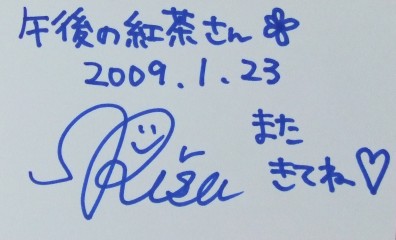 午後の紅茶さん
2009.1.23
Risa
また
きてね♡